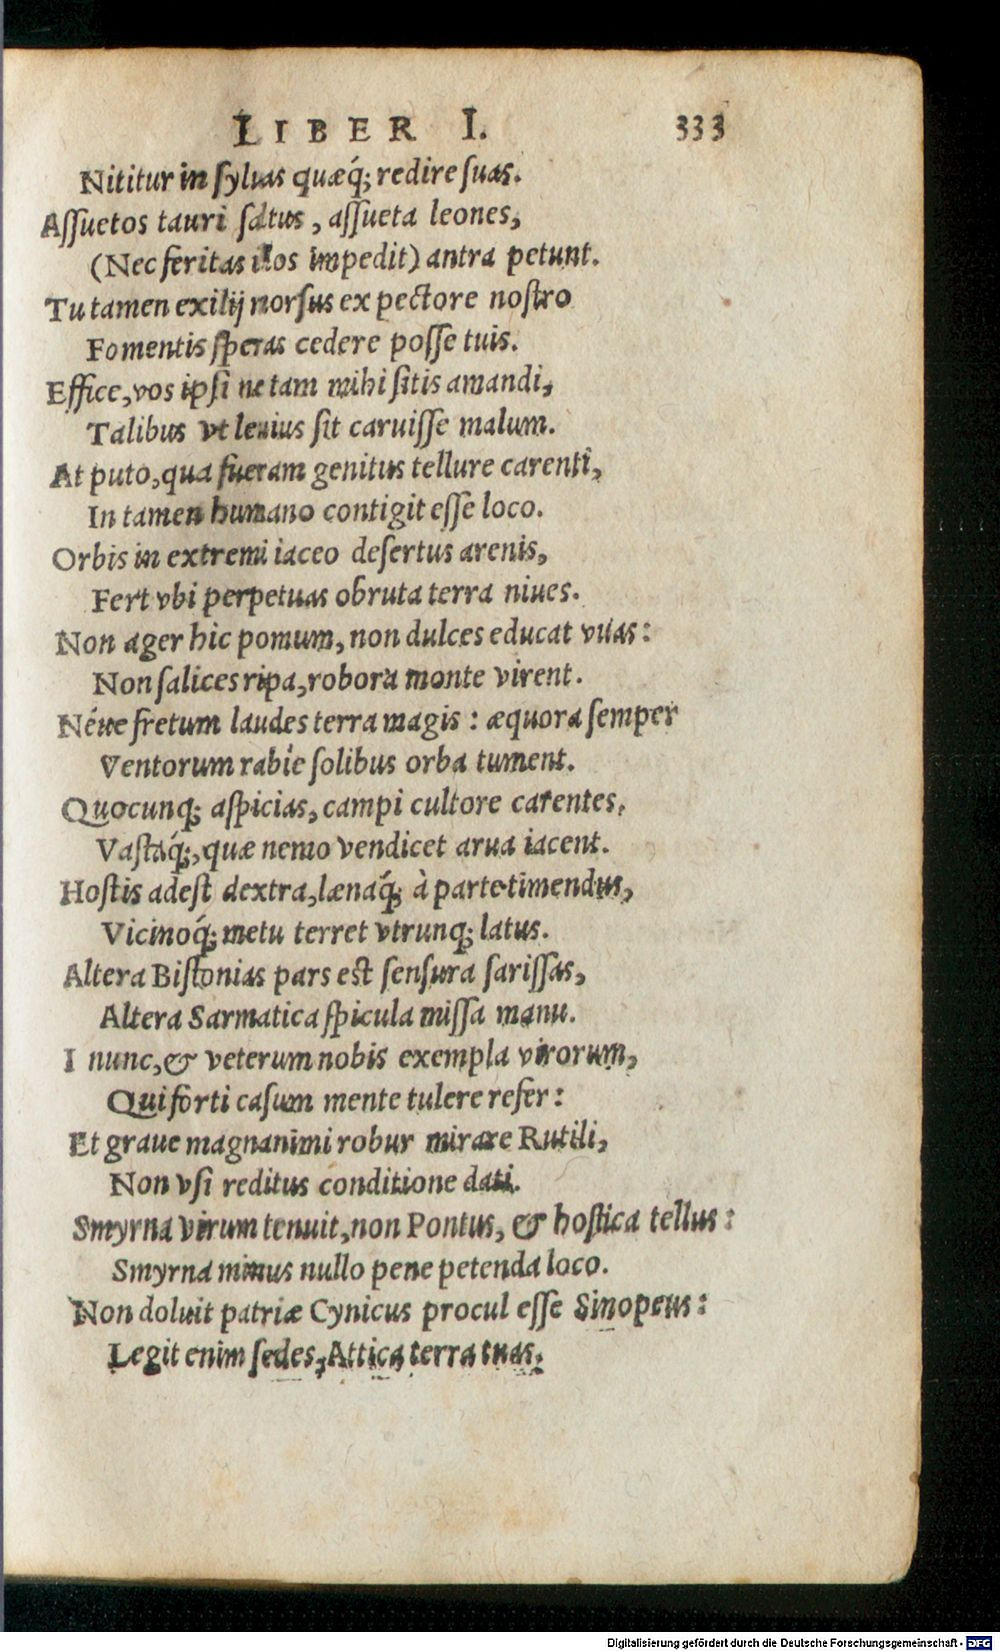 LIBER I. 333
Nititur in ſyluas quæq́; redire ſuas.
Aſſuetos tauri ſaltus, aſſueta leones,
(Nec feritas illos impedit) antra petunt.
Tu tamen exilij morſus ex pectore noſtro
Fomentis ſperas cedere poſſe tuis.
Effice, vos ipſi ne tam mihi ſitis amandi,
Talibus vt leuius ſit caruiſſe malum.
At puto, qua fueram genitus tellure carenti,
In tamen humano contigit eſſe loco.
Orbis in extremi iaceo deſertus arenis,
Fert vbi perpetuas obruta terra niues.
Non ager hic pomum, non dulces educat vuas:
Non ſalices ripa, robora monte virent.
Néue fretum laudes terra magis: æquora ſemper
Ventorum rabie ſolibus orba tument.
Quocunq; aſpicias, campi cultore carentes,
Vaſtaq́;, quæ nemo vendicet arua iacent.
Hoſtis adeſt dextra, læuaq́; à parte timendus,
Vicinoq́; metu terret vtrunq; latus.
Altera Biſtonias pars eſt ſenſura ſariſſas,
Altera Sarmatica ſpicula miſſa manu.
I nunc, & veterum nobis exempla virorum,
Qui forti caſum mente tulere refer:
Et graue magnanimi robur mirare Rutili,
Non vſi reditus conditione dati.
Smyrna virum tenuit, non Pontus, & hoſtica tellus:
Smyrna minus nullo pene petenda loco.
Non doluit patriæ Cynicus procul eſſe Sinopeus:
Legit enim ſedes, Attica terra tuas.
Digitalisierung gefördert durch die Deutsche Forschungsgemeinschaft - DFG